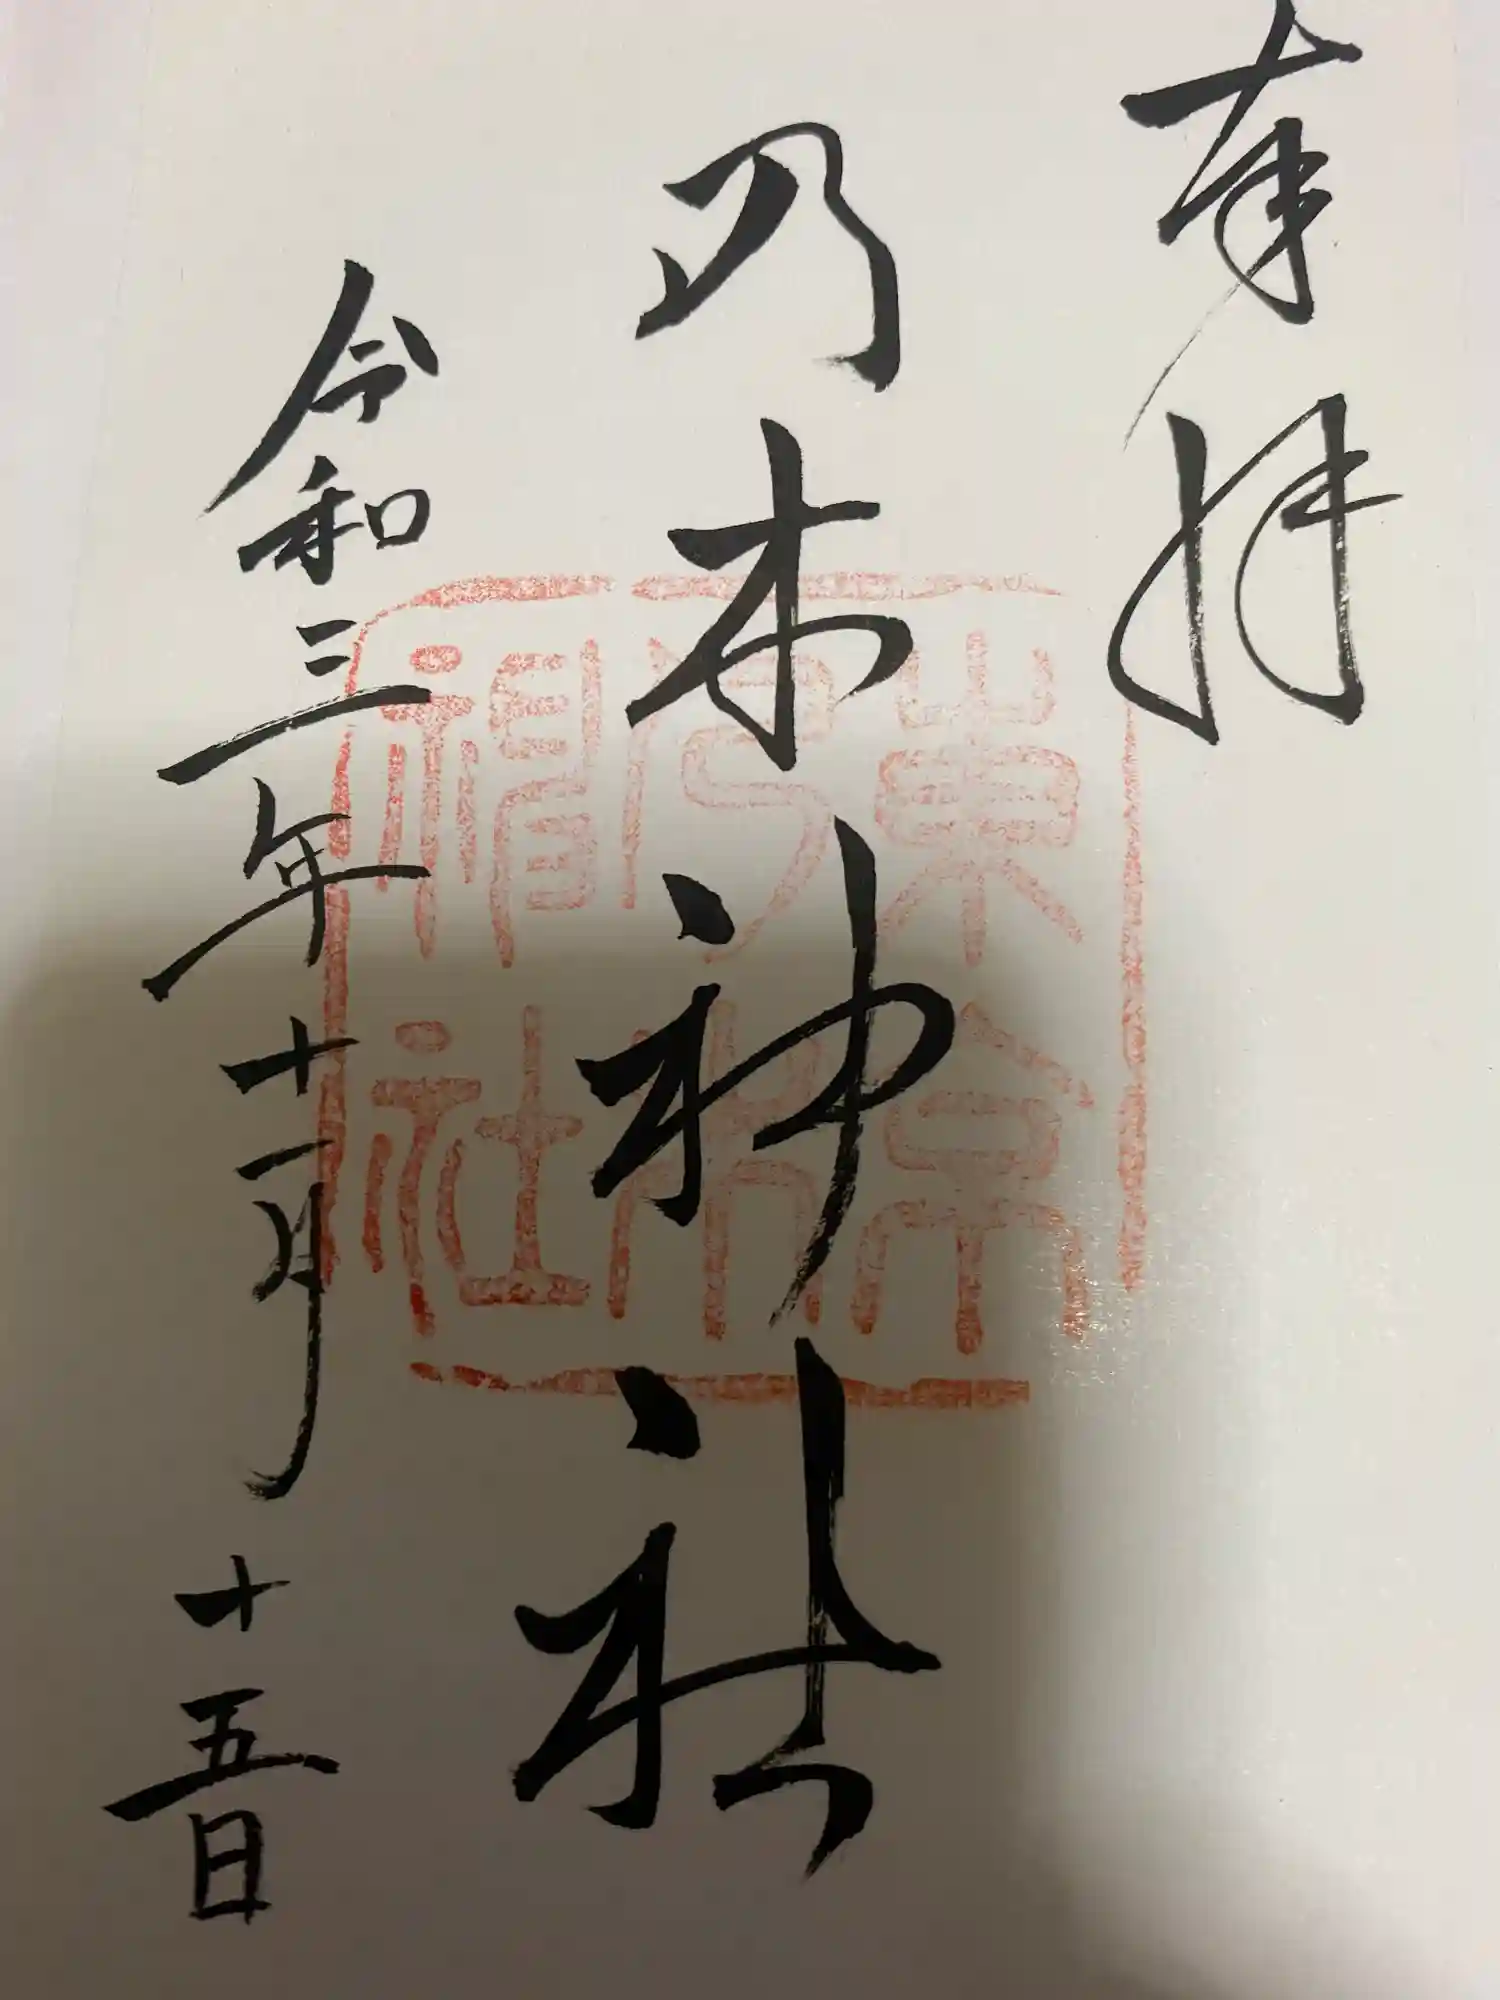 奉拝
乃木神社
令和三年十一月十五日
東京
乃木
神社